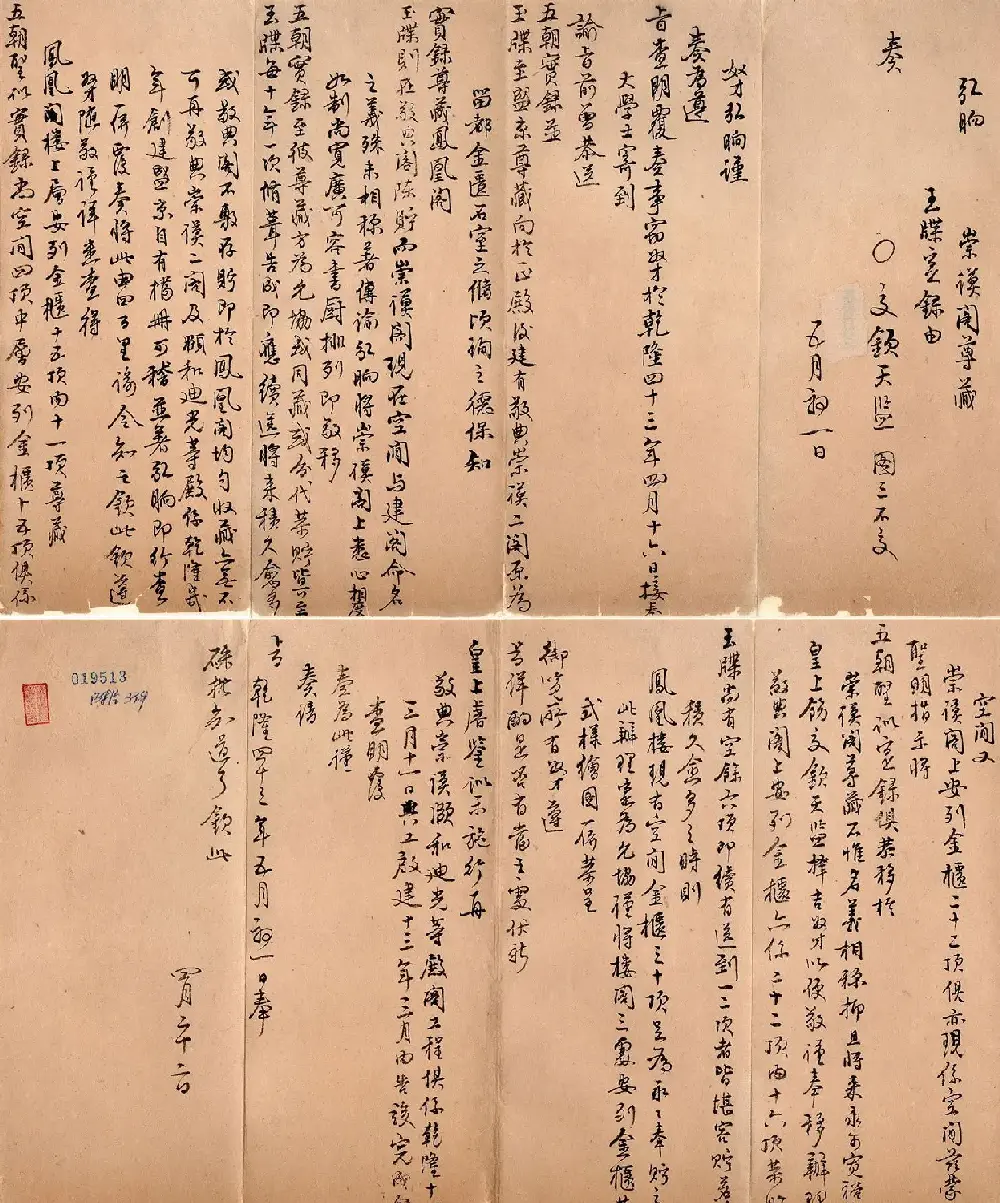 弘晌
崇謨閣尊藏
玉牒實錄由
奏
〇 交欽天監 圖三不交
五月初一日
奴才弘晌謹
奏為遵
旨查明覆奏事竊奴才於乾隆四十三年四月十六日接奉
大學士寄到
諭旨前曾恭送
五朝實錄並
玉牒至盛京尊藏向於正殿後建有敬典崇謨二閣原為
留都金匱石室之備頃詢之德保知
實錄尊藏鳳凰閣
玉牒則在敬典閣陳貯而崇謨閣現在空閒與建閣命名
之義殊未相稱著傳諭弘晌將崇謨閣上悉心相度
如制尚寬廣可容書廚排列即敬移
五朝實錄至彼尊藏方為允協或同藏或分代
玉牒每十年一次修葺告成即應續送將來積久愈多
或敬典閣不敷存貯即於鳳凰閣均勻收藏亦無不
可再敬典崇謨二閣及頤和迪光等殿係乾隆幾
年創建盛京自有檔冊可稽並著弘晌即行查
明一併覆奏將此由四百里諭令知之欽此欽遵
奴才隨敬謹詳悉查得
鳳凰閣樓上層安列金櫃十五頂內十一頂尊藏
五朝聖訓實錄尚空閒四頂中層安列金櫃十五頂俱係
空閒又
崇謨閣上安列金櫃二十二頂俱亦現係空閒茲蒙
聖明指示將
五朝聖訓實錄俱恭移於
崇謨閣尊藏不惟名義相稱抑且將來永有寬裕
皇上飭交欽天監擇吉奴才以便敬謹奉移辦理
敬典閣上安列金櫃亦係二十二頂內十六頂恭貯
玉牒尚有空餘六頂即續有送到一二頂者皆堪容貯若
積久愈多之時則
鳳凰樓現有空閒金櫃三十頂足為永之奉貯之
此辦理實為允協謹將樓閣三處安列金櫃
式樣繪圖一併恭呈
御覽所有奴才遵
旨詳酌是否有當之處伏祈
皇上睿鑒訓示施行再
敬典崇謨頤和迪光等殿閣工程俱係乾隆十
三月十一日興工啟建十三年三月內告竣完成
查明覆
奏為此謹
奏請
旨
乾隆四十三年五月初一日奉
硃批知道了欽此
四月二十二日
019513